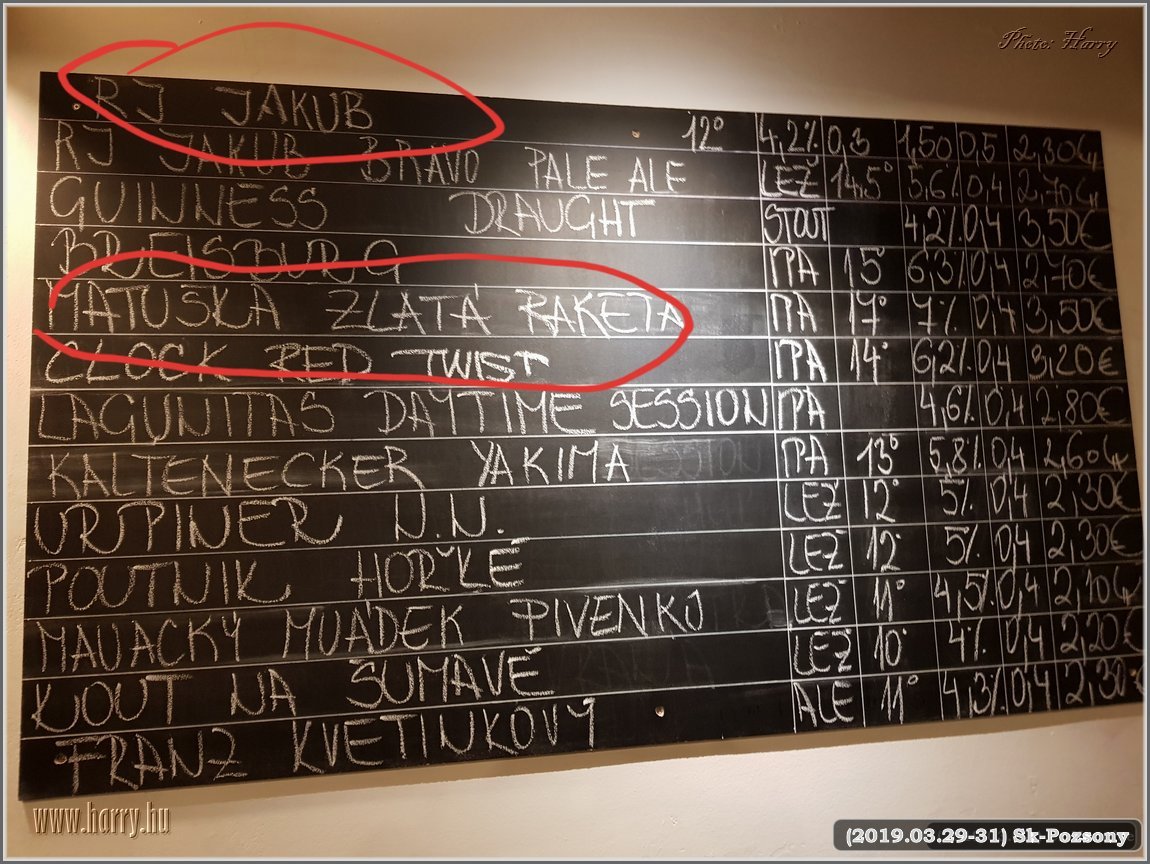 Photo: Harry
RJ JAKUB 12° 4,2% 0,3 1,50 0,5 2,30€
RJ JAKUB BRAVO PALE ALE LEŽ 14,5° 5,6% 0,4 2,70€
GUINNESS DRAUGHT STOUT 4,2% 0,4 3,50€
IPA 15° 6,3% 0,4 2,70€
MATUŠKA ZLATÁ RAKETA IPA 17° 7% 0,4 3,50€
CLOCK RED TWIST IPA 14° 6,2% 0,4 3,20€
LAGUNITAS DAYTIME SESSION IPA 4,6% 0,4 2,80€
KALTENECKER YAKIMA IPA 13° 5,8% 0,4 2,60€
URPINER N.N. LEŽ 12° 5% 0,4 2,30€
POUTNIK HOŘKÉ LEŽ 12° 5% 0,4 2,30€
MAUACKÝ MUÁDEK PIVENKO LEŽ 11° 4,5% 0,4 2,10€
KOUT NA ŠUMAVĚ LEŽ 10° 4% 0,4 2,20€
FRANZ KVETINKOVÝ ALE 11° 4,3% 0,4 2,30€
www.harry.hu
(2019.03.29-31) Sk-Pozsony